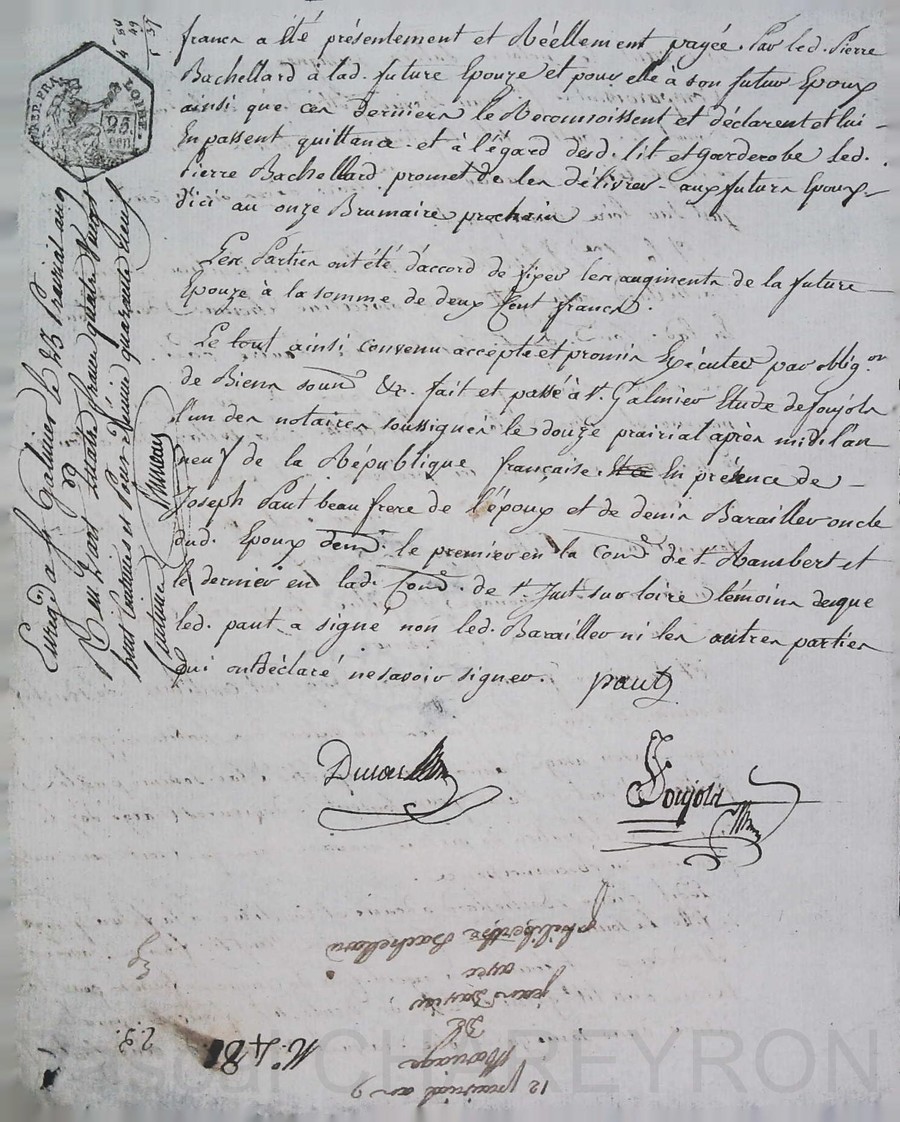 francs a été présentement et Réellement payée. Par led. Pierre
Bachellard à lad. future Epouze et pour elle a son futur Epoux
ainsi que ces derniers le Reconnoissent et déclarent et lui
En passent quittance. et à l'égard desd. lit et Garderobe led.
Pierre Bachellard promet de les délivrer aux futurs Epoux
d'ici au onze Brumaire prochain
Les Parties ont été d'accord de fixer les augments de la future
Epouze à la somme de deux Cent francs.
Le tout ainsi convenu accepté et promis Exécuter par oblig.on
de Biens soum &c. fait et passé à St. Galmier Etude de Joujols
l'un des notaires soussignés le douze prairial après midi l'an
neuf de la République française En présence de
Joseph Paut beau frere de l'époux et de denis Barailler oncle
dud. Epoux dem. le premier en la Com. de St. Rambert et
le dernier en lad. Com. de St. Just sur loire témoins desque
led. paut a signé non led. Barailler ni les autres parties
qui ont déclaré ne savoir signer. paut
Joujols
Enreg. à St. Galmier le 23 Prairial an 9
huit Centimes et Pour
12 prairial an 9
Mariage
De
jean
avec
philiberthe Bachellard
N.° 48
29.
REP. FRA.
25
cen.
CHAREYRON